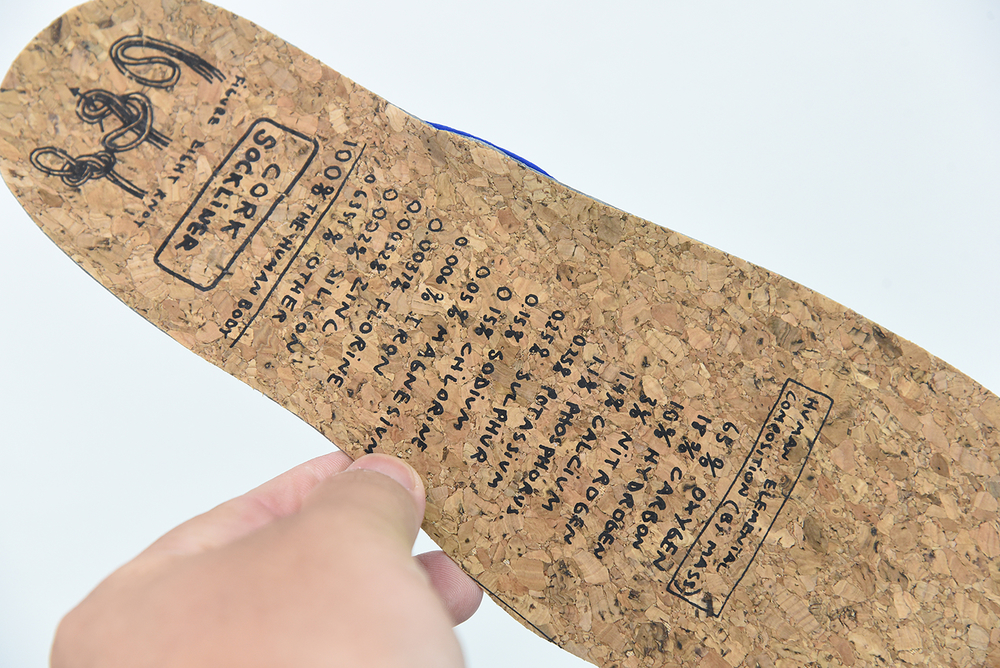 HUMAN ELEMENTAL
COMPOSITION (BY MASS)
65% OXYGEN
18% CARBON
10% HYDROGEN
3% NITROGEN
1.4% CALCIUM
1.1% PHOSPHORUS.
0.25% POTASSIUM
0.25% SULPHUR
0.15% SODIUM
0.15% CHLORINE
0.05% MAGNESIUM
0.006% IRON
0.0037% FLORINE
0.0032% ZINC
0.002% SILICON
0.6351% OTHER
100% THE HUMAN BODY
CORK
SOCKLINER
FIGURE EIGHT KNOT